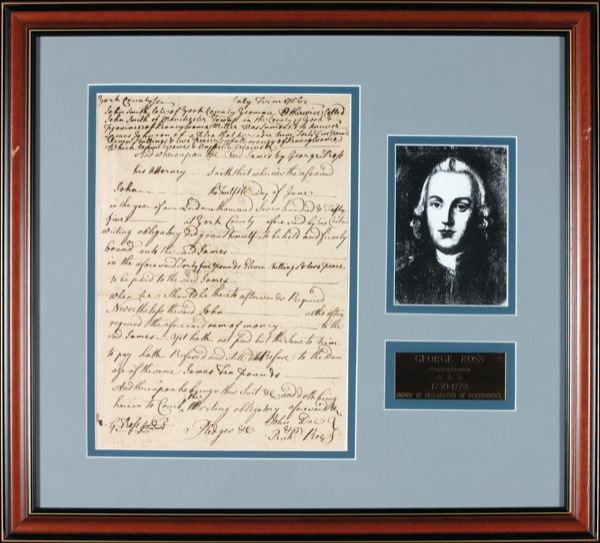 York County ss July Term 1756
John Smith late of York County Yeoman Otherwise Called
John Smith of Township in the County of York &
Province of Pennsylvania Miller was Summoned to Answer
James Johnson of a Plea that he render him Forty five pounds
Eleven Shillings & two pence money of Pennsylvania
Which he owes & Unjustly Detains &c
And whereupon the Said James by George Ross
his Attorney Saith that whereas the aforesaid
John the twelfth Day of June
in the year of our Lord one thousand Seven hundred & Fifty
five at York County aforesaid by his Certain
writing obligatory did grant himself to be held and firmly
bound unto the said James
in the aforesaid Forty five pounds Eleven Shillings & two pence
to be paid to the said James
when he Should be thereto afterwards Required
Nevertheless the said John altho often
required the aforesaid sum of money to the
said James Yet hath not paid but the Same to him
to pay hath Refused and still doth Refuse to the Dam
age of the same James Ten Pounds
And thereupon he brings this Suit &c and doth bring
herein to Court the writing obligatory aforesaid &c
G. Ross Pledges &c John Doe
Richd Roe
GEORGE ROSS
Pennsylvania
1730-1779
SIGNER OF DECLARATION OF INDEPENDENCE